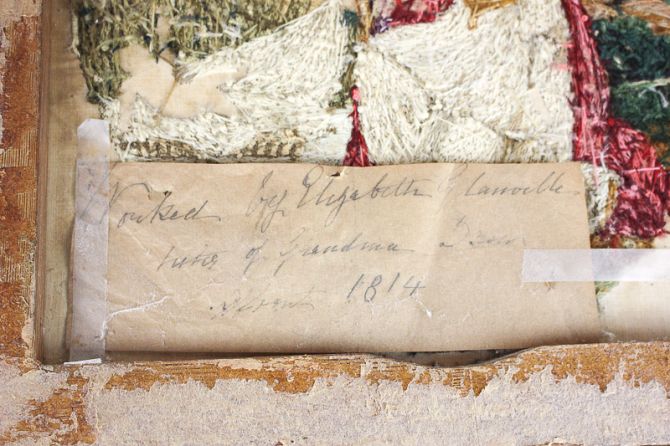 Worked by Elizabeth Glanville
of Grandma
1814